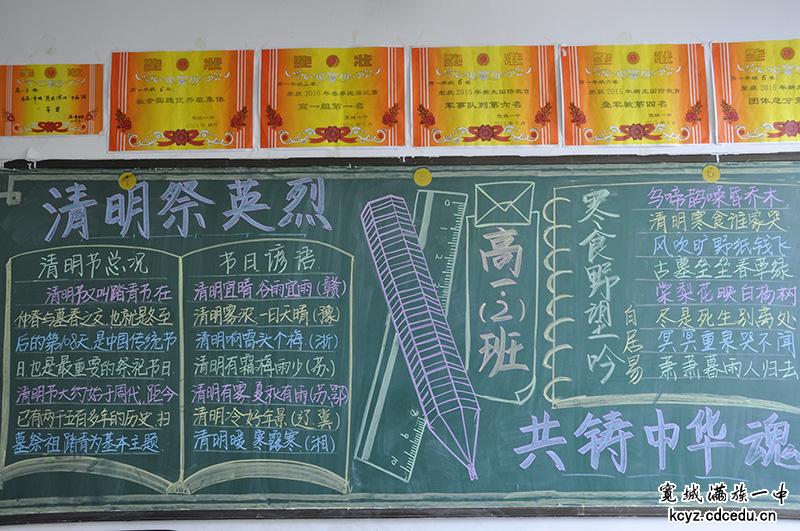 奖状
社会实践优秀班集体
奖状
荣获2015年冬季越野比赛
高一组第一名
奖状
高一年级6班
荣获2015年新生国防教育
军事队列第六名
奖状
荣获2015年新生国防教育
内务评比第四名
奖状
荣获2015年新生国防教育
团体总分
清明祭英烈
清明节总况
清明节又叫踏青节,在
仲春与暮春之交,也就是冬至
后的第108天,是中国传统节
日也是最重要的祭祀节日
清明节大约始于周代,距今
已有两千五百多年的历史,扫
墓祭祖 踏青为基本主题
节日谚语
清明宜晴 谷雨宜雨(赣)
清明雾浓 一日天晴(豫)
清明响雷头个梅(浙)
清明有霜梅雨少(苏)
清明有雾 夏秋有雨(苏、鄂)
清明冷 好年景(辽、冀)
清明暖 寒露寒(湘)
高一(2)班
寒食野望吟
白居易
乌啼鹊噪昏乔木
清明寒食谁家哭
风吹旷野纸钱飞
古墓垒垒春草绿
棠梨花映白杨树
尽是死生别离处
冥冥重泉哭不闻
萧萧暮雨人归去
共铸中华魂
宽城满族一中
kcyz.cdcedu.cn